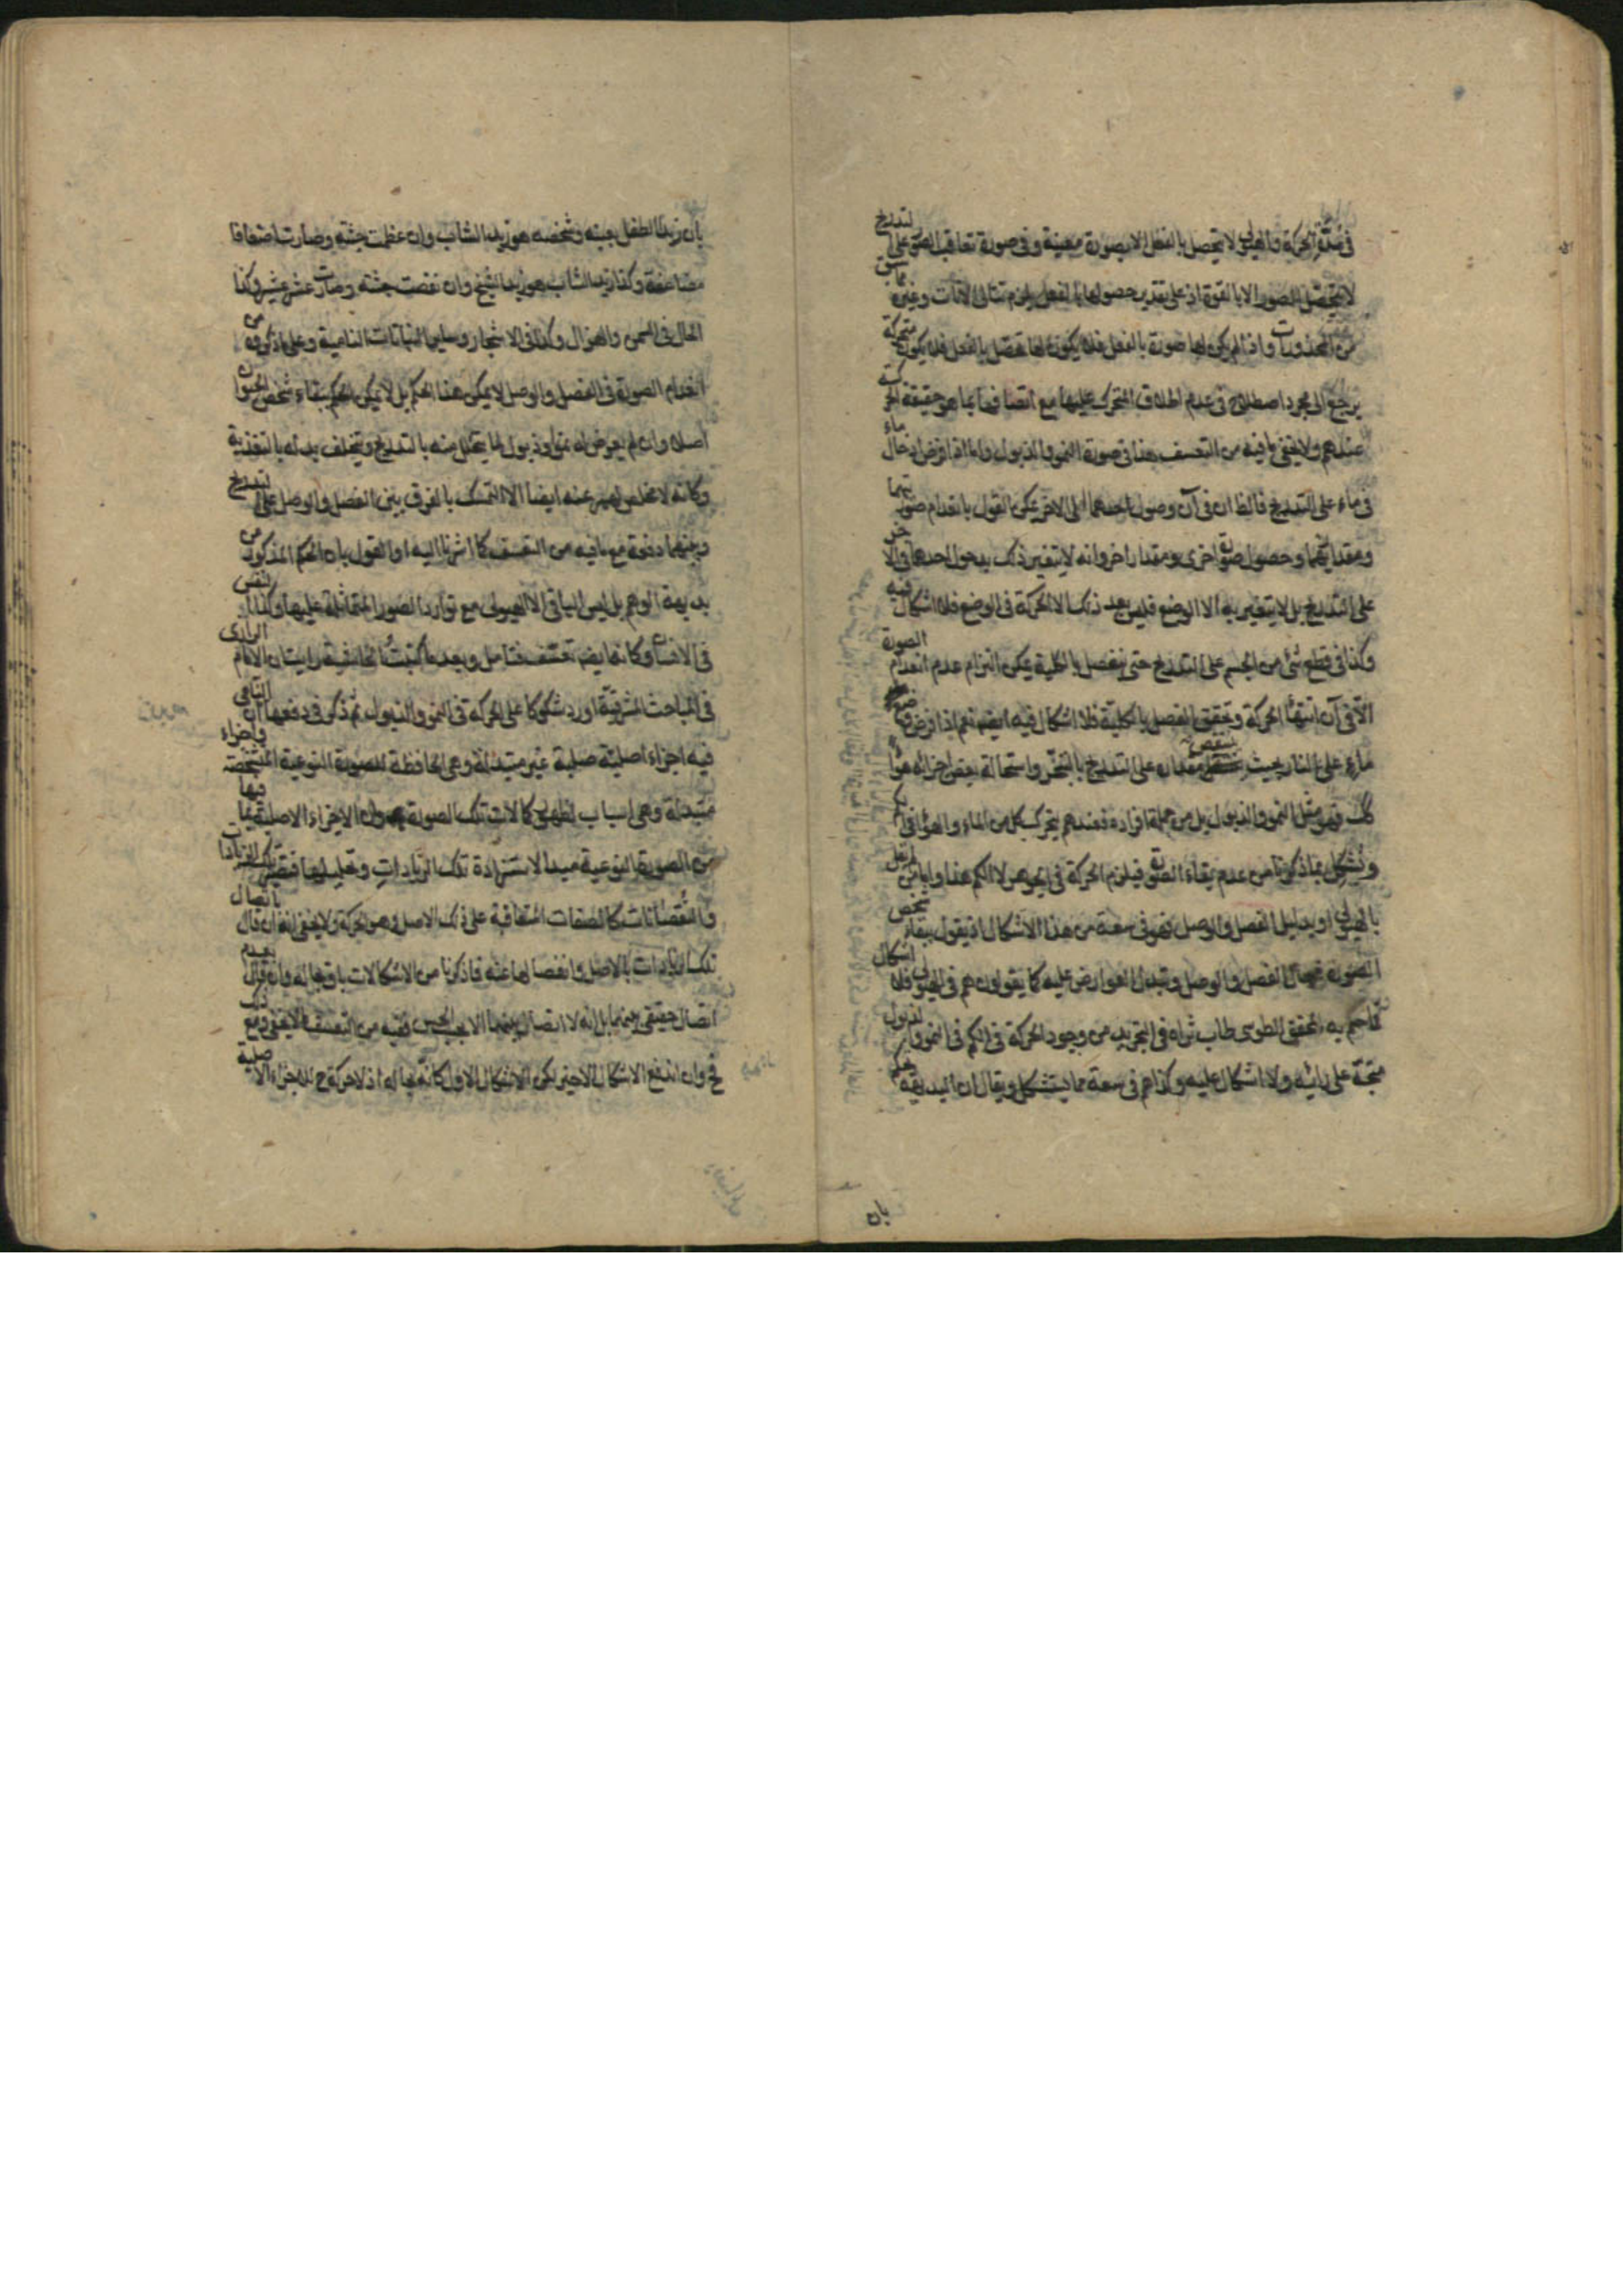 في مدة الحركة والهيولى لا يتحصل بالفعل الا بصورة معينة وفى صورة تعاقب الصور على التدريج
لا يتحصل الصور الا بالقوة اذ على تقدير حصولها بالفعل يلزم تتالى الآنات وغيره مما سبق
من المحذورات واذا لم يكن لها صورة بالفعل فلا يكون لها تحصل بالفعل فلا يكون متحركة
يرجع الى مجرد اصطلاح فى عدم اطلاق المتحرك عليها مع اتصافها بما هو حقيقة الحركة
عندهم ولا يخفى ما فيه من التعسف هذا فى صورة النمو والذبول واما اذا فرض ادخال ماء
فى ماء على التدريج فالظ ان فى آن وصول احدهما الى الاخر يمكن القول بانعدام صورتيهما
ومقداريهما وحصول صورة اخرى ومقدار اخر وانه لا يتغير ذلك بدخول احدهما فى الاخر
على التدريج بل لا يتغير به الا الوضع فليس بعد ذلك الا الحركة فى الوضع فلا اشكال فيه
وكذا فى قطع شئ من الجسم على التدريج حتى ينفصل بالكلية يمكن التزام عدم انعدام الصورة
الا فى آن انتهاء الحركة وتحقق الفصل بالكلية فلا اشكال فيه ايضا نعم اذا فرض وضع
ماء على النار بحيث ينتقص مقداره على التدريج بالتبخر واستحالة بعض اجزائه هواء
كك فهو مثل النمو والذبول بل من جملة افراده فعندهم يتحرك كل من الماء والهواء فى الكم
ويشكل بما ذكرنا من عدم بقاء الصورة فيلزم الحركة فى الجوهر لا الكم هذا واما من لم يقل
بالهيولى او بدليل الفصل والوصل فهو فى سعة من هذا الاشكال اذ يقول ببقاء شخص
الصورة فى حال الفصل والوصل وتبدل العوارض عليه كما يقولون هم فى الهيولى فلا اشكال
فما حكم به المحقق الطوسى طاب ثراه فى التجريد من وجود الحركة فى الكم فى النمو والذبول
متجه على رائه ولا اشكال عليه وكذا هم فى سعة مما يستشكل ويقال ان البديهة تحكم
بان
بان زيدا الطفل بعينه وشخصه هو زيد الشاب وان عظمت جثته وصارت اضعافا
مضاعفة وكذا زيد الشاب هو زيد الشيخ وان نقصت جثته وصارت عشر عشير وكذا
الحال فى السمن والهزال وكذا فى الاشجار وساير النباتات النامية وعلى ما ذكروه من
انعدام الصورة فى الفصل والوصل لا يمكن هذا الحكم بل لا يمكن الحكم ببقاء شخص الحيوان
اصلا وان لم يعرض له نمو او ذبول لما يتحلل منه بالتدريج ويتخلف بدله بالتغذية
وكانه لا مخلص لهم عنه ايضا الا التمسك بالفرق بين الفصل والوصل على التدريج
وبينهما دفعة مع ما فيه من التعسف كما اشرنا اليه او القول بان الحكم المذكور من
بديهة الوهم بل ليس الباقى الا الهيولى مع توارد الصور المتماثلة عليها وكذا النفس
فى الانسان وكانه ايضا تعسف فتامل وبعد ما كتبت رايت ان الامام الرازى
فى المباحث المشرقية اورد شكوكا على الحركة فى النمو والذبول ثم ذكر فى دفعها ان النامى
فيه اجزاء اصلية صلبة غير متبدلة وهى الحافظة للصورة النوعية المشخصة واجزاء
متبدلة وهى اسباب لظهور كمالات تلك الصورة الاجزاء الاصلية بما فيها
من الصورة النوعية مبدا لاستزادة تلك الزيادات وتحليلها فتصير تلك الزيادات
والنقصانات كالصفات المتعاقبة على ذلك الاصل وهو الحركة ولا يخفى انه ان قال باتصال
تلك الزيادات بالاصل وانفصالها عنه فما ذكرنا من الاشكالات باق بحاله وان قال بعدم
اتصال حقيقى بينهما بل انه لا اتصال بينهما الا بحسب الحس ففيه من التعسف ما لا يخفى ومع ذلك
فح وان اندفع الاشكال الاخير لكن الاشكال الاول كانه بحاله اذ لا حركة ح للاجزاء الاصلية